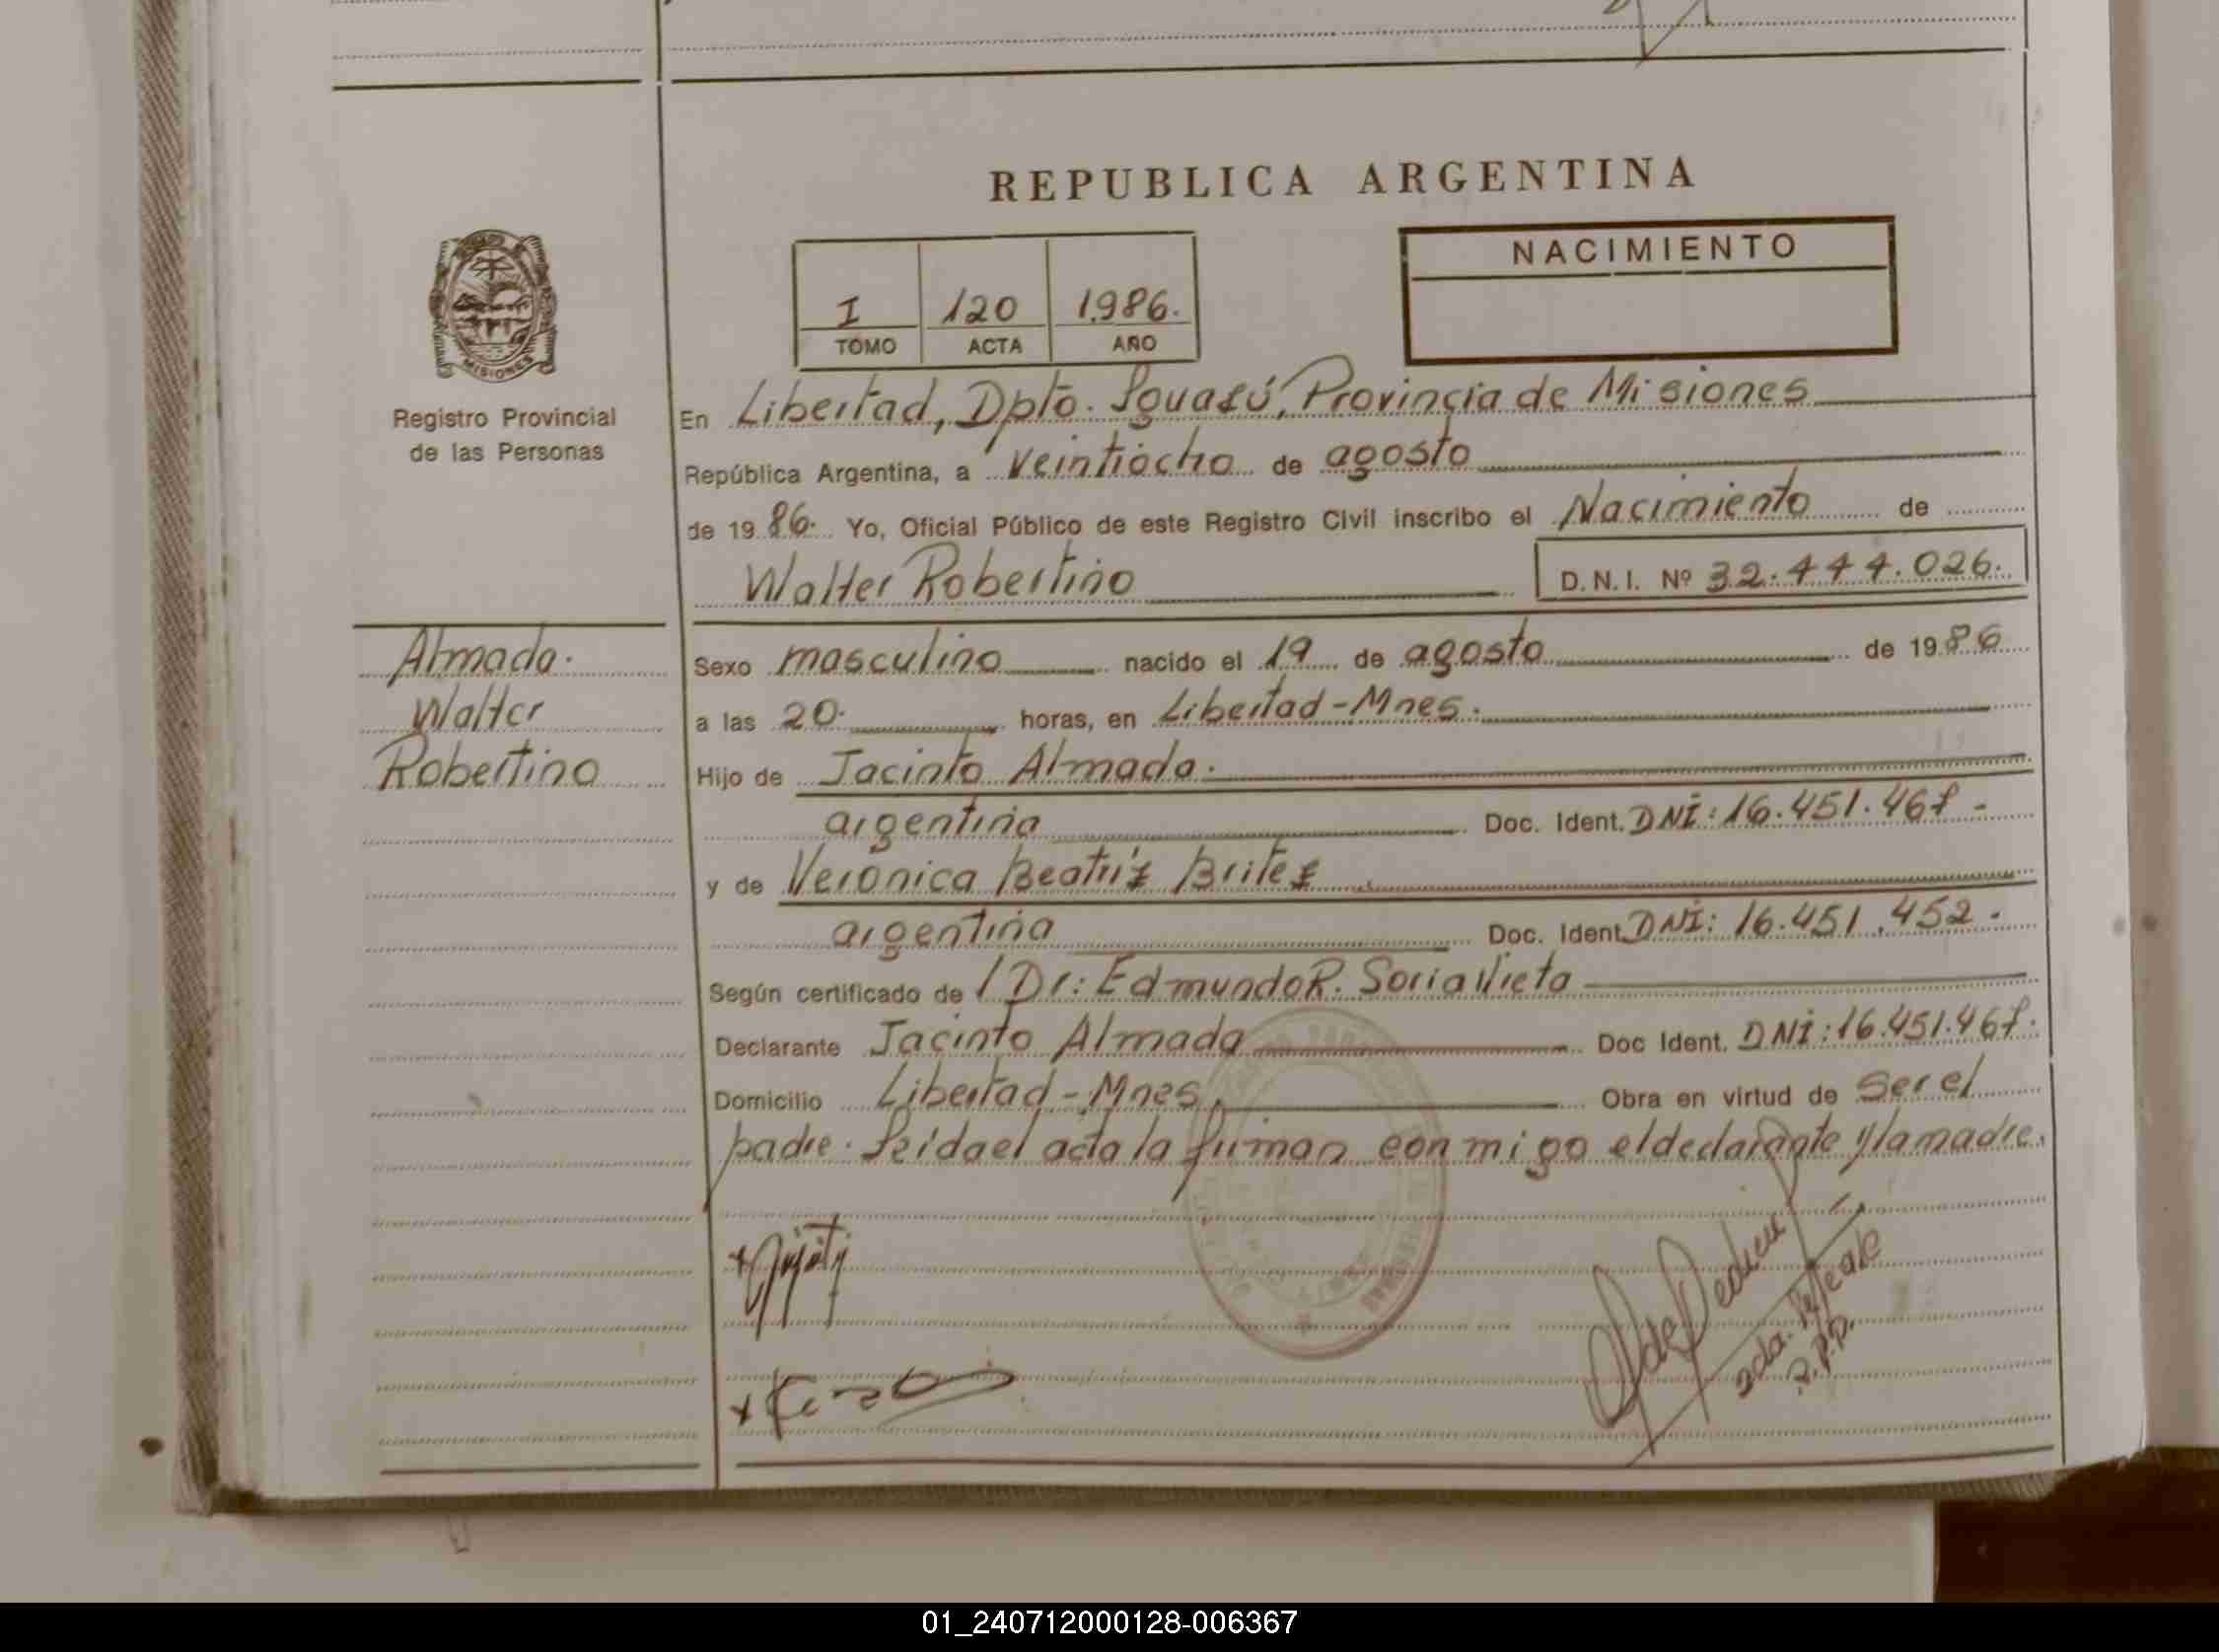 REPUBLICA ARGENTINA
NACIMIENTO
I 120 1.986.
TOMO ACTA AÑO
MISIONES
Registro Provincial
de las Personas
En Libertad, Dpto. Iguazú, Provincia de Misiones
República Argentina, a veintiocho de agosto
de 19 86. Yo, Oficial Público de este Registro Civil inscribo el Nacimiento de
Walter Robertino D.N.I. Nº 32.444.026.
Almada.
Walter
Robertino
Sexo masculino nacido el 19 de agosto de 19 86
a las 20. horas, en Libertad - Mnes.
Hijo de Jacinto Almada.
argentina Doc. Ident. DNI: 16.451.467 -
y de Verónica Beatriz Britez
argentina Doc. Ident. DNI: 16.451.452.
Según certificado de / Dr: Edmundo R. Soria Vieta
Declarante Jacinto Almada Doc Ident. DNI: 16.451.467.
Domicilio Libertad - Mnes, Obra en virtud de Ser el
padre. Leída el acta la firman con migo el declarante y la madre.
R.P.P.
01_240712000128-006367